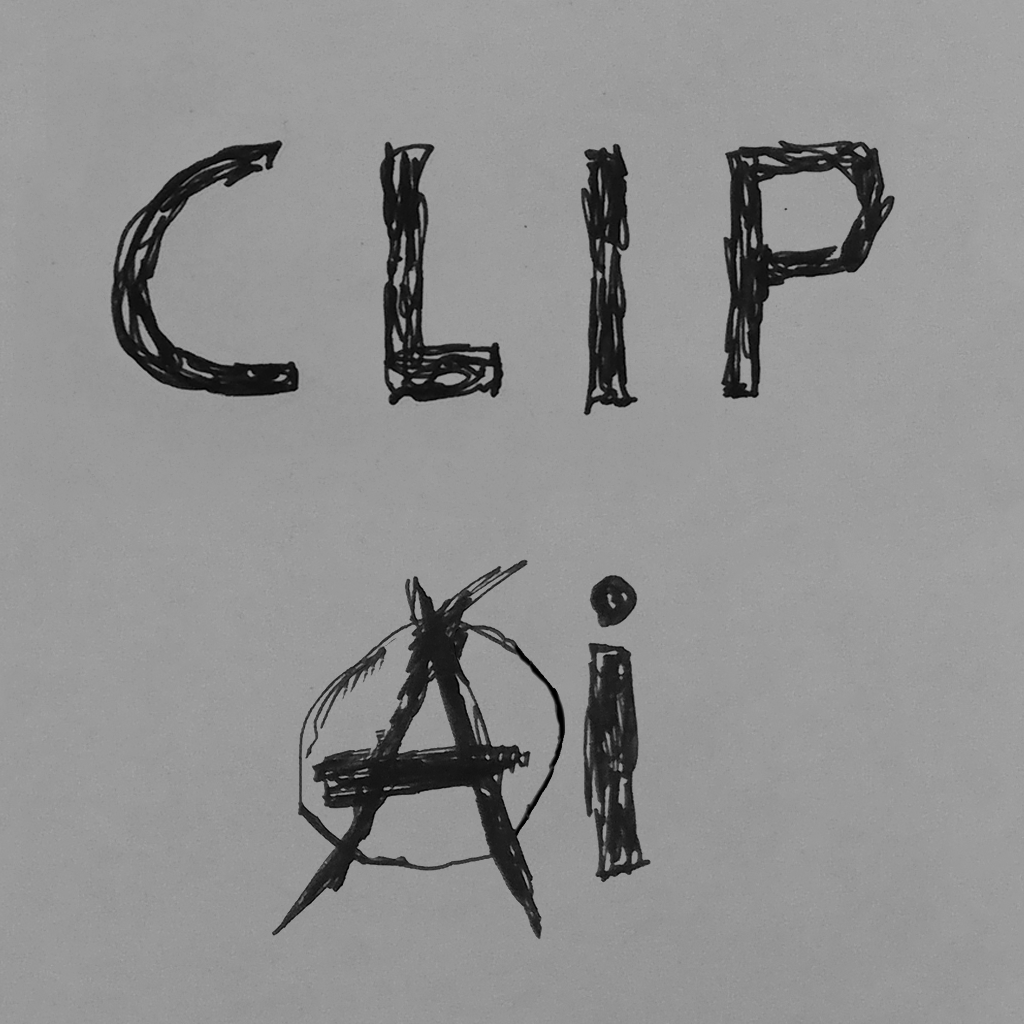 CLIP
Ai